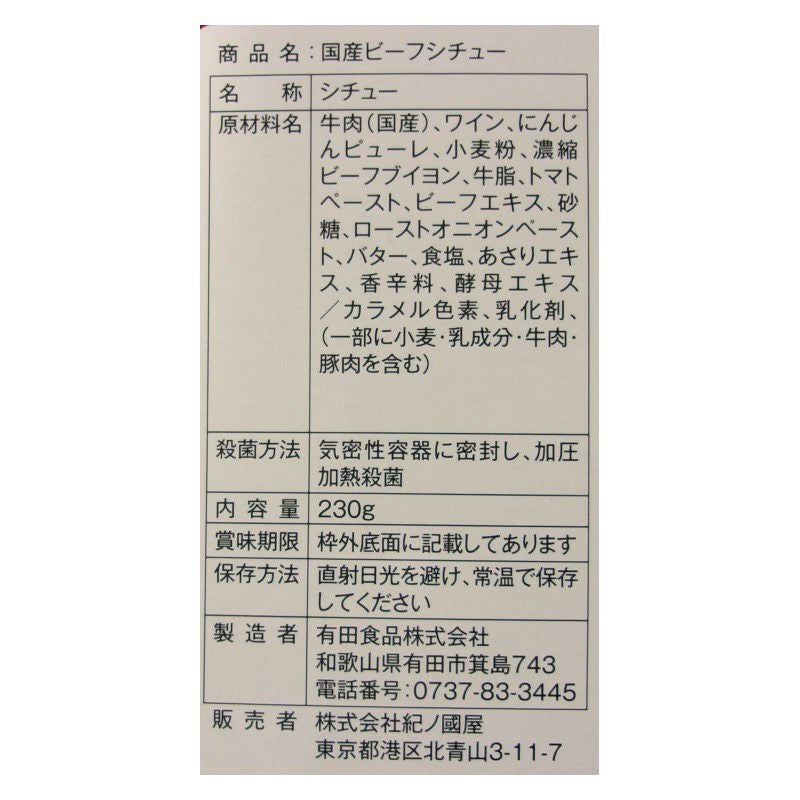 商品名：国産ビーフシチュー
名称 シチュー
原材料名 牛肉（国産）、ワイン、にんじ
んピューレ、小麦粉、濃縮
ビーフブイヨン、牛脂、トマト
ペースト、ビーフエキス、砂
糖、ローストオニオンペース
ト、バター、食塩、あさりエキ
ス、香辛料、酵母エキス
／カラメル色素、乳化剤、
（一部に小麦・乳成分・牛肉・
豚肉を含む）
殺菌方法 気密性容器に密封し、加圧
加熱殺菌
内容量 230g
賞味期限 枠外底面に記載してあります
保存方法 直射日光を避け、常温で保存
してください
製造者 有田食品株式会社
和歌山県有田市箕島743
電話番号：0737-83-3445
販売者 株式会社紀ノ國屋
東京都港区北青山3-11-7